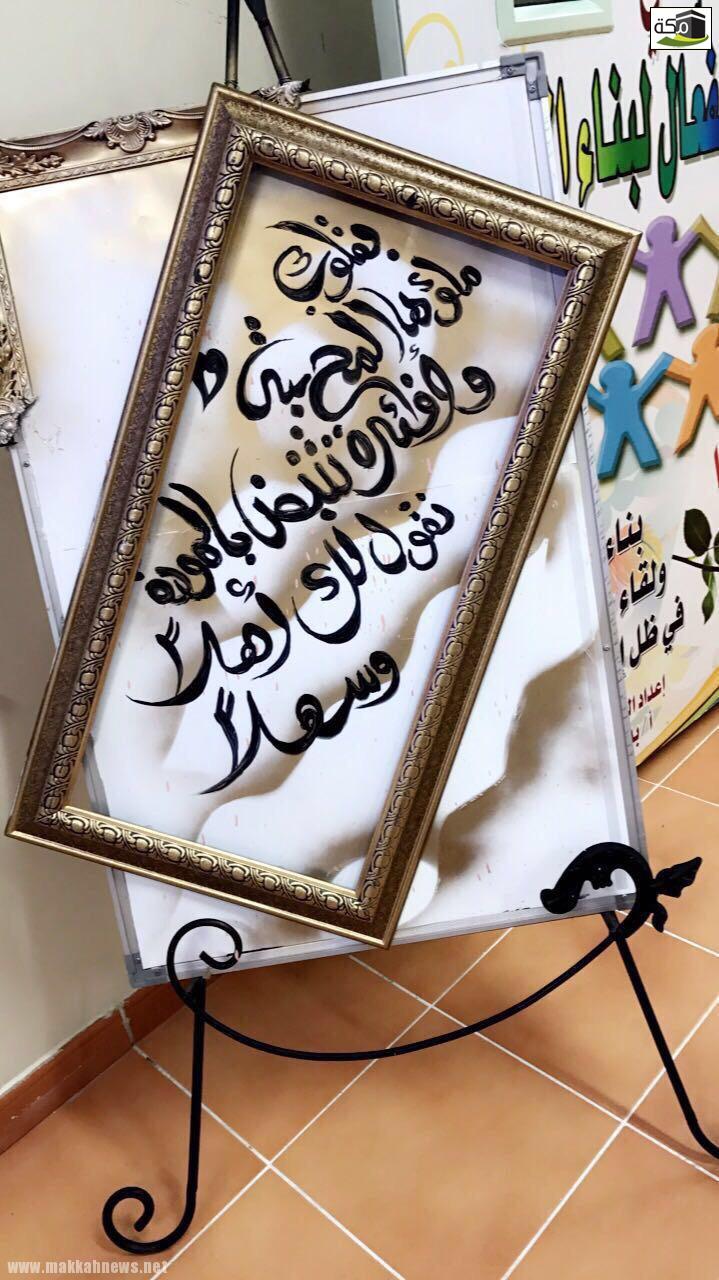 مكة
بقلوب
ملؤها المحبة
وأفئدة تنبض بالمودة
نقول لك أهلا
وسهلا
فعال لبناء
بناء
ولقاء
في ظل
إعداد
www.makkahnews.net